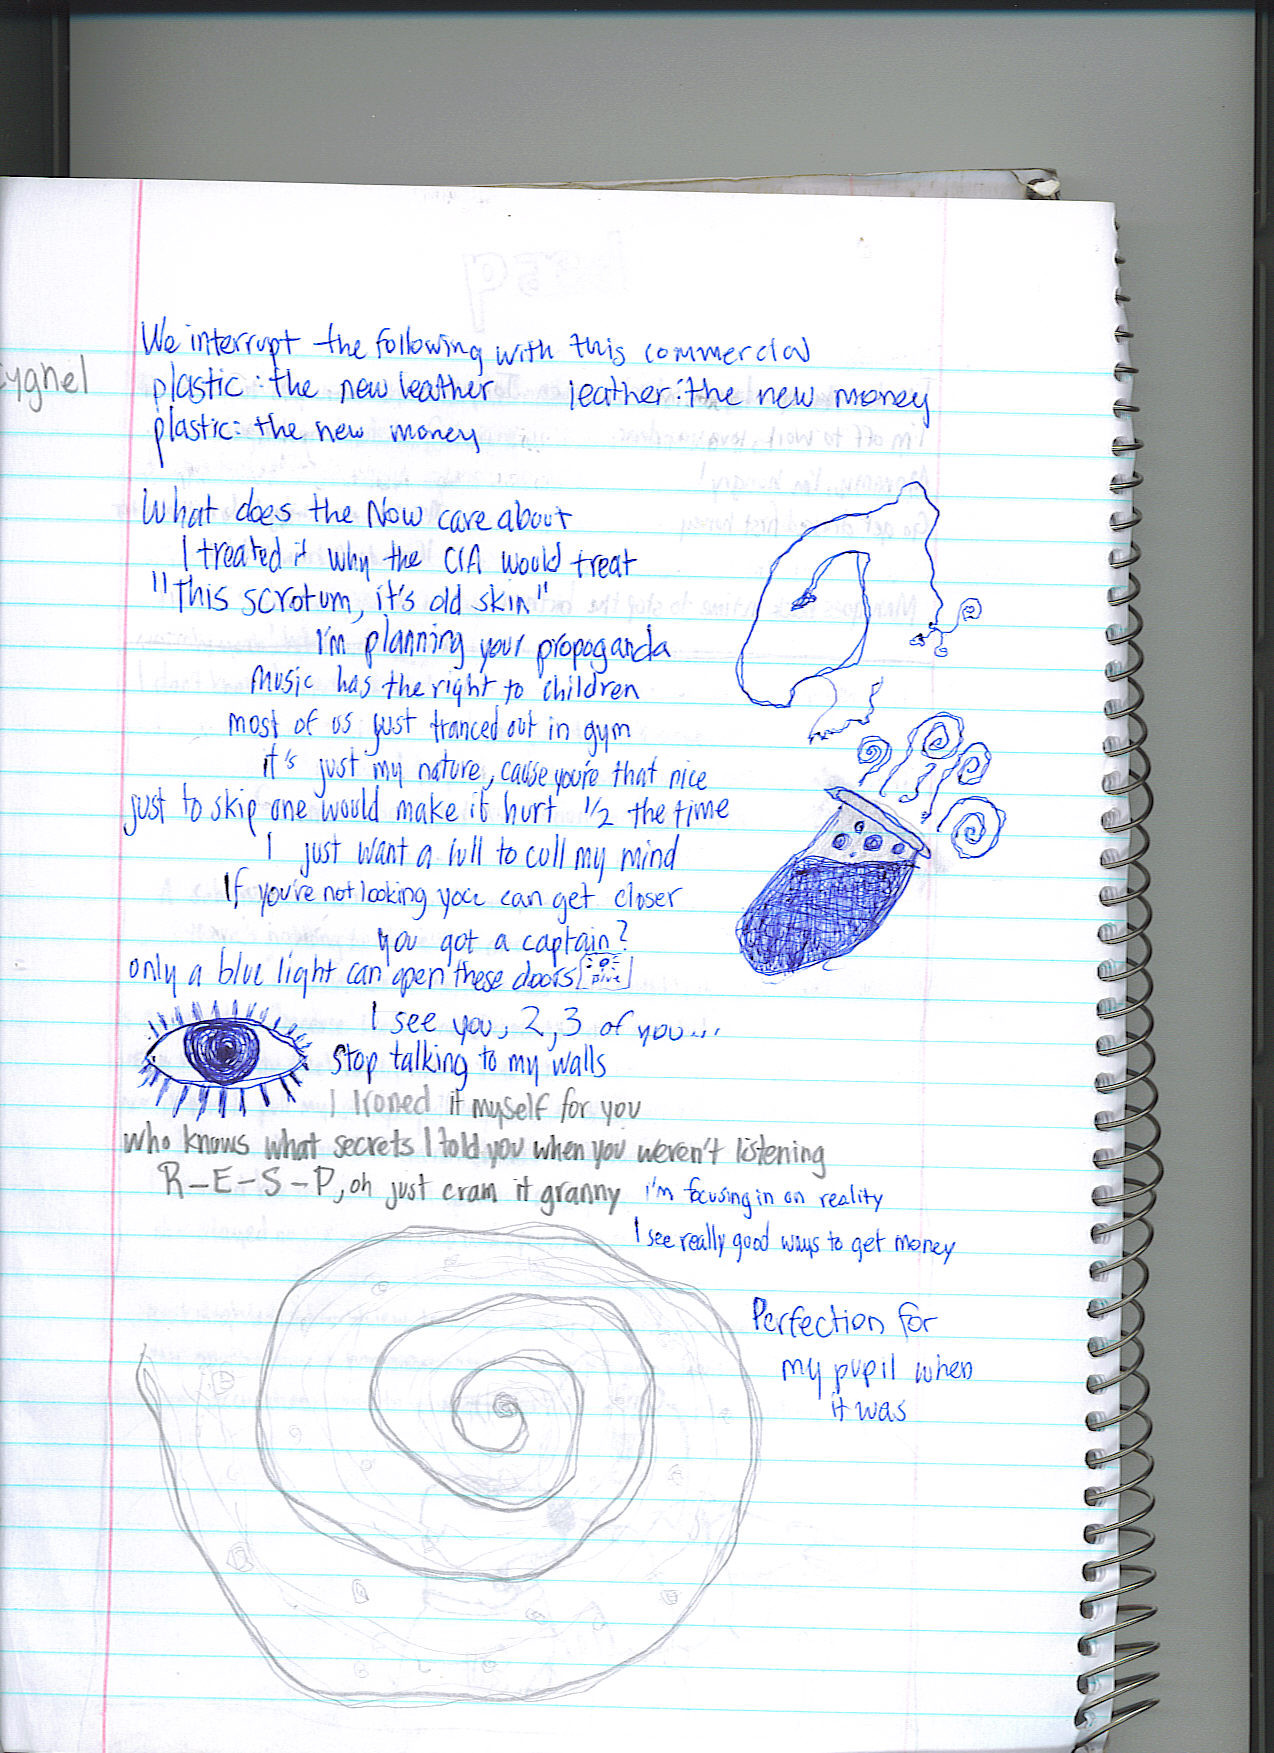 Cygnel
We interrupt the following with this commercial
plastic: the new leather leather: the new money
plastic: the new money
What does the Now care about
I treated it why the CIA would treat
"This scrotum, it's old skin"
I'm planning your propaganda
music has the right to children
most of us just tranced out in gym
it's just my nature, cause you're that nice
just to skip one would make it hurt 1/2 the time
I just want a lull to cull my mind
If you're not looking you can get closer
you got a captain?
only a blue light can open these doors
I see you, 2, 3 of you...
stop talking to my walls
I Ironed it myself for you
who knows what secrets I told you when you weren't listening
R-E-S-P, oh just cram it granny i'm focusing in on reality
I see really good ways to get money
Perfection for
my pupil when
it was